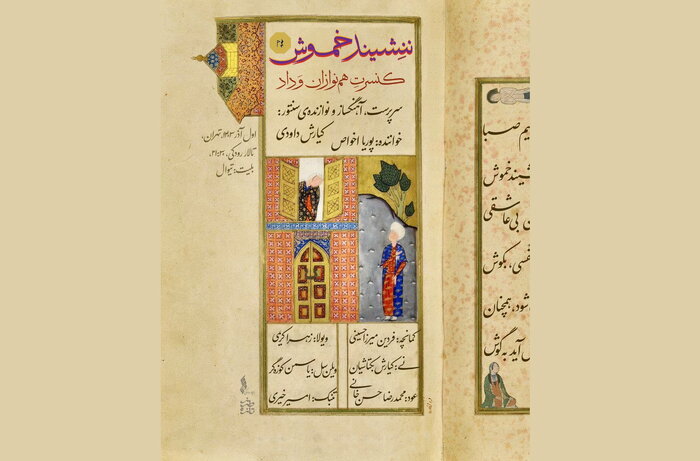 ننشیند خموش
کنسرتِ هم‌نوازان وَداد
سرپرست، آهنگساز و نوازنده‌ی سنتور:
کیارش داودی
خواننده: پوریا اخواص
اول آذر ۱۴۰۳، تهران،
تالار رودکی، ۲۱:۳۰
بلیت: تیوال
کمانچه: فردین میرزاحسینی
نی: کیارش بختاشیان
عود: محمدرضا حسن‌خانی
ویولا: زهرا کریمی
ویلن‌سل: یاسمن کوزه‌گر
تنبک: امیر خیری
یم صبا
شیند خموش
ن بی عاشقی
نفسی، بکوش
شود، همچنان
آید به گوش